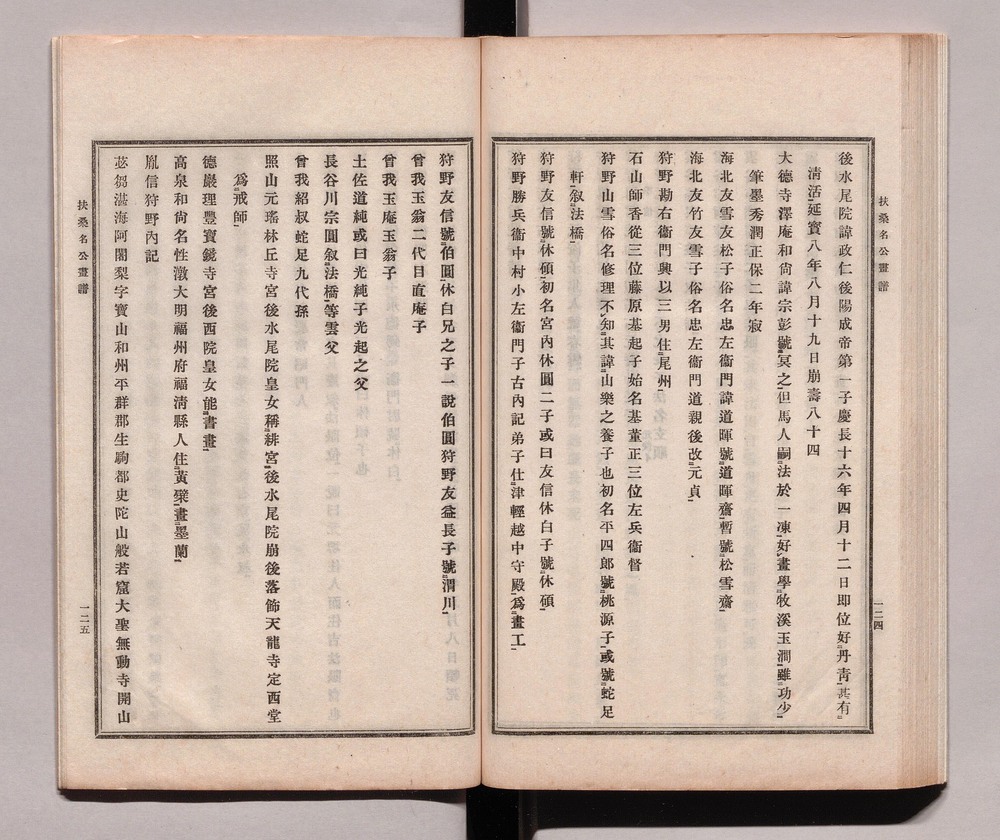 扶桑名公畫譜
一二四
後水尾院諱政仁後陽成帝第一子慶長十六年四月十二日即位好丹靑甚有
淸活延寶八年八月十九日崩壽八十四
大德寺澤庵和尙諱宗彭號冥之但馬人嗣法於一凍好畫學牧溪玉澗雖功少
筆墨秀潤正保二年寂
海北友雪友松子俗名忠左衞門諱道暉號道暉齋暫號松雪齋
海北友竹友雪子俗名忠左衞門道親後改元貞
狩野勘右衞門興以三男住尾州
石山師香從三位藤原基起子始名基董正三位左兵衞督
狩野山雪俗名修理不知其諱山樂之養子也初名平四郎號桃源子或號蛇足
軒叙法橋
狩野友信號休碩初名宮內休圓二子或曰友信休白子號休碩
狩野勝兵衞中村小左衞門子古內記弟子仕津輕越中守殿爲畫工
狩野友信號伯圓休白兄之子一說伯圓狩野友益長子號渭川
曾我玉翁二代目直庵子
曾我玉庵玉翁子
土佐道純或曰光純子光起之父
長谷川宗圓叙法橋等雲父
曾我紹叔蛇足九代孫
照山元瑤林丘寺宮後水尾院皇女稱緋宮後水尾院崩後落飾天龍寺定西堂
爲戒師
德嚴理豐寶鏡寺宮後西院皇女能書畫
高泉和尙名性潡大明福州府福淸縣人住黃檗畫墨蘭
胤信狩野內記
苾芻湛海阿闍梨字寶山和州平群郡生駒都史陀山般若窟大聖無動寺開山
扶桑名公畫譜
一二五